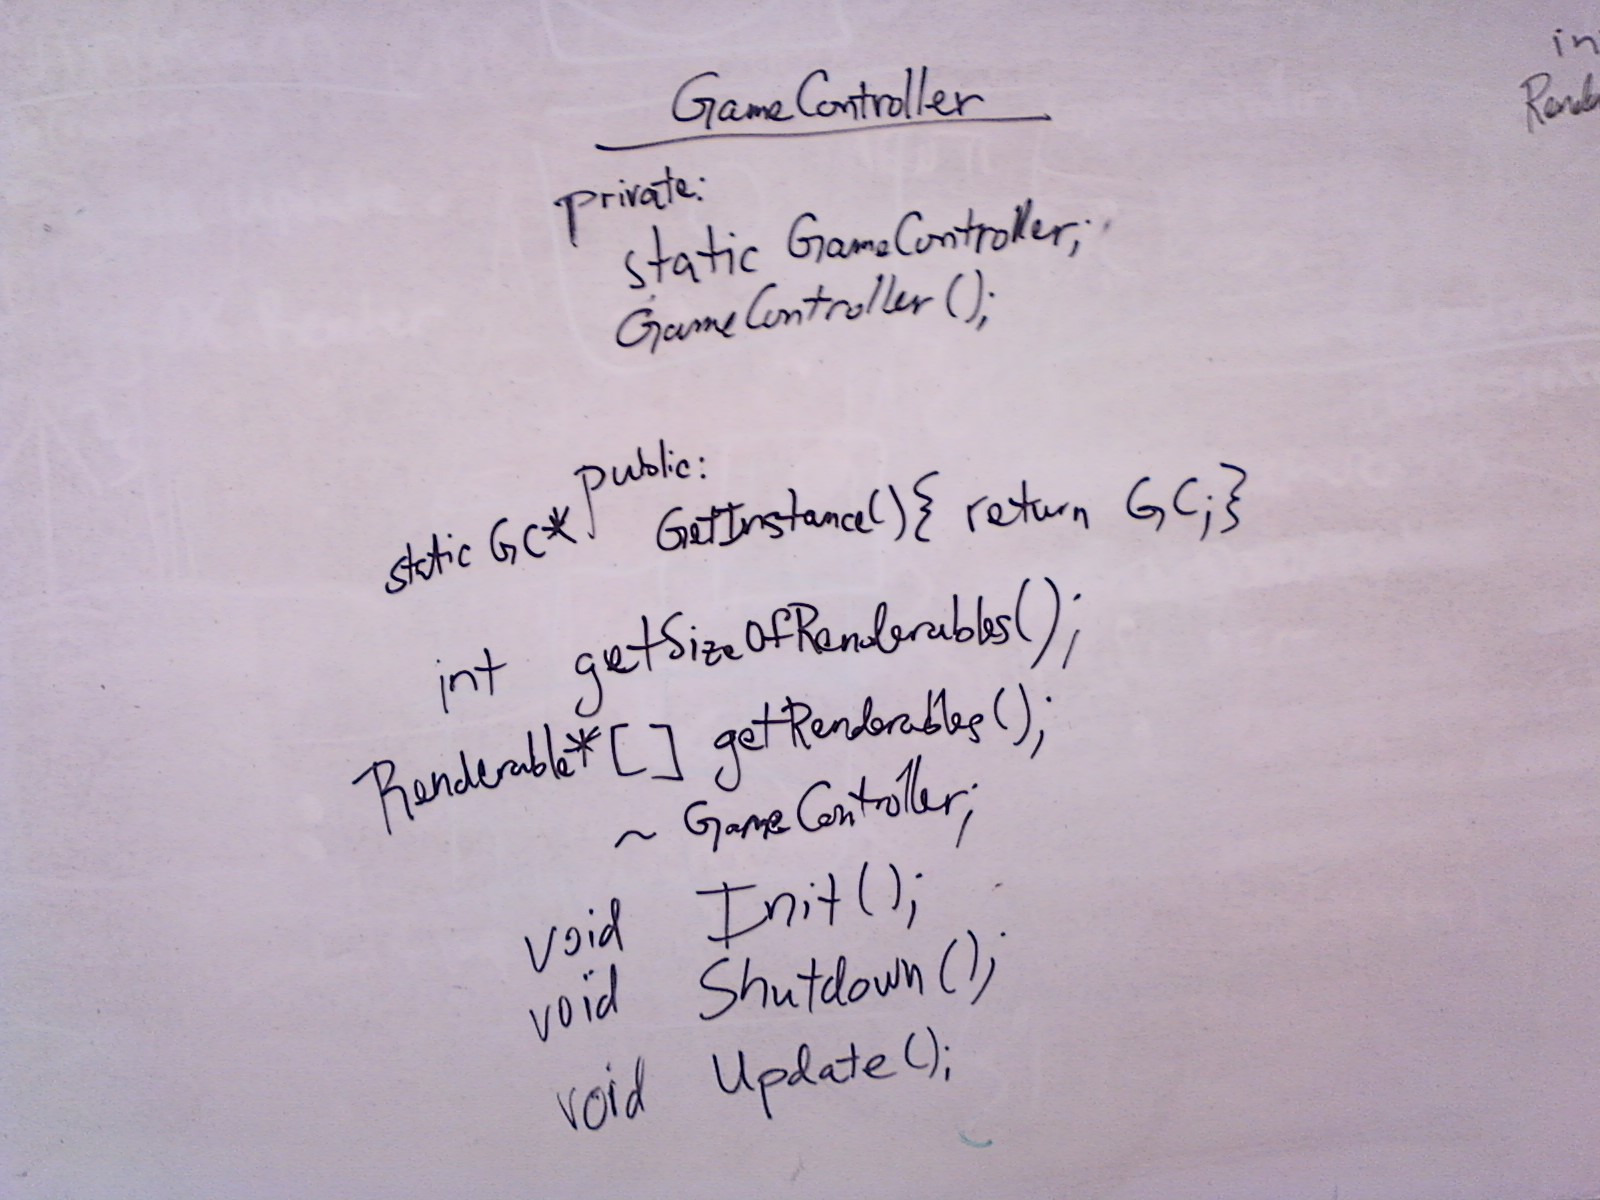 GameController
private:
static GameController;
GameController();
public:
static GC* GetInstance(){ return GC;}
int getSizeOfRenderables();
Renderable*[] getRenderables();
~ GameController;
void Init();
void Shutdown();
void Update();
in
Rende